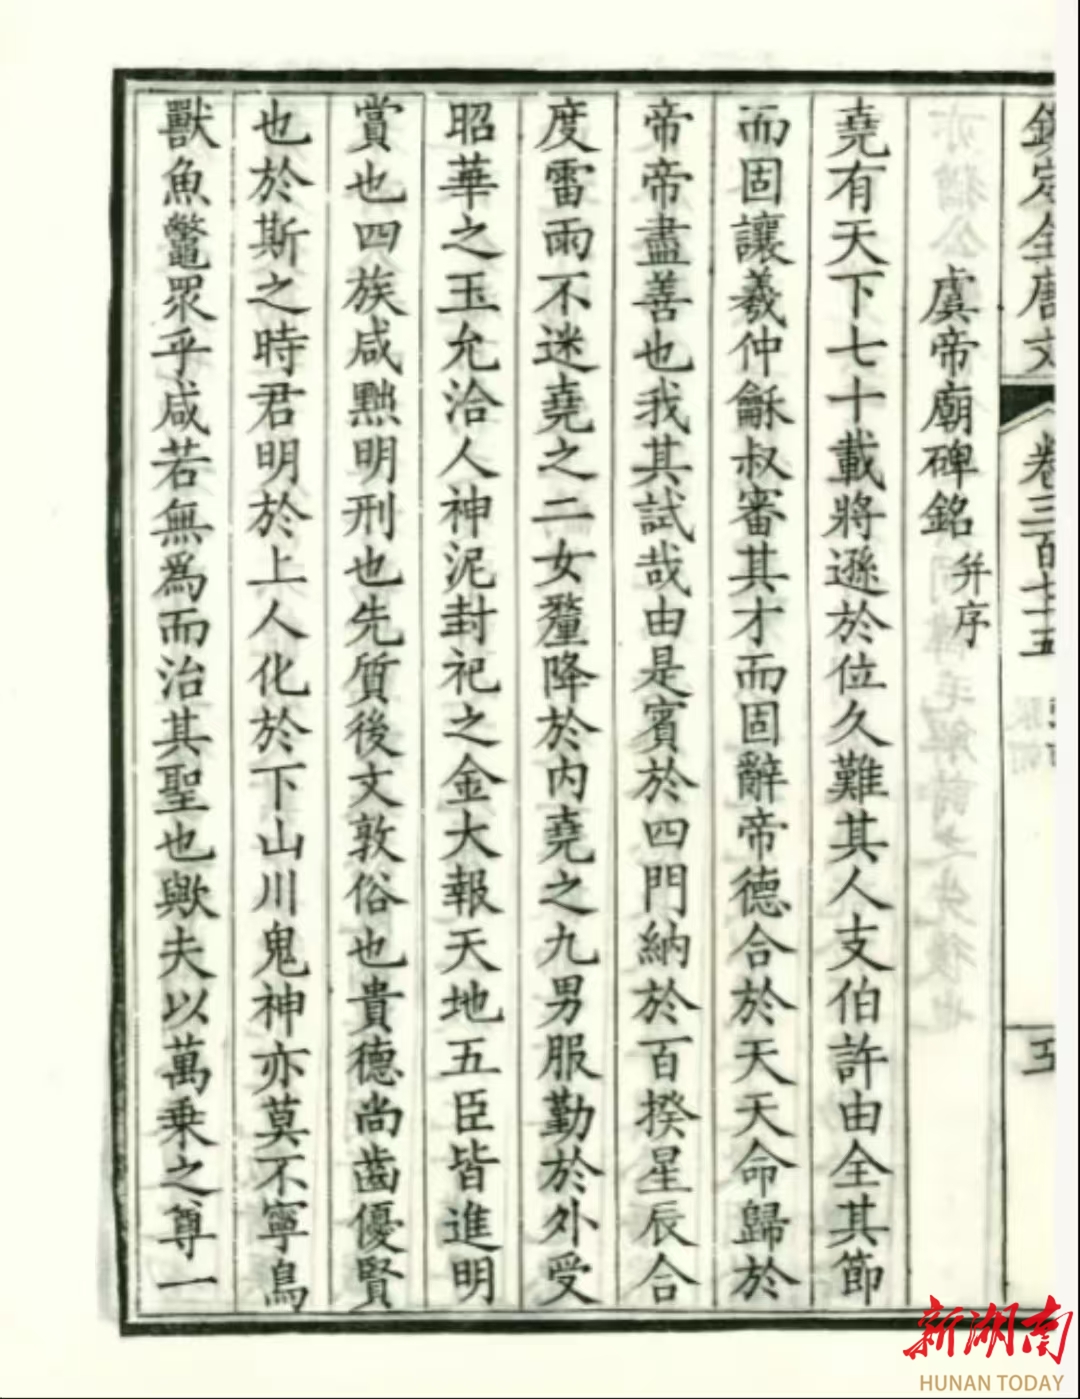 欽定全唐文
卷三百七十五
五
虞帝廟碑銘 并序
堯有天下七十載將遜於位久難其人支伯許由全其節
而固讓羲仲龢叔審其才而固辭帝德合於天天命歸於
帝帝盡善也我其試哉由是賓於四門納於百揆星辰合
度雷雨不迷堯之二女釐降於內堯之九男服勤於外受
昭華之玉允洽人神泥封祀之金大報天地五臣皆進明
賞也四族咸黜明刑也先質後文敦俗也貴德尚齒優賢
也於斯之時君明於上人化於下山川鬼神亦莫不寧鳥
獸魚鼈眾乎咸若無爲而治其聖也歟夫以萬乗之尊一
新湖南
HUNAN TODAY